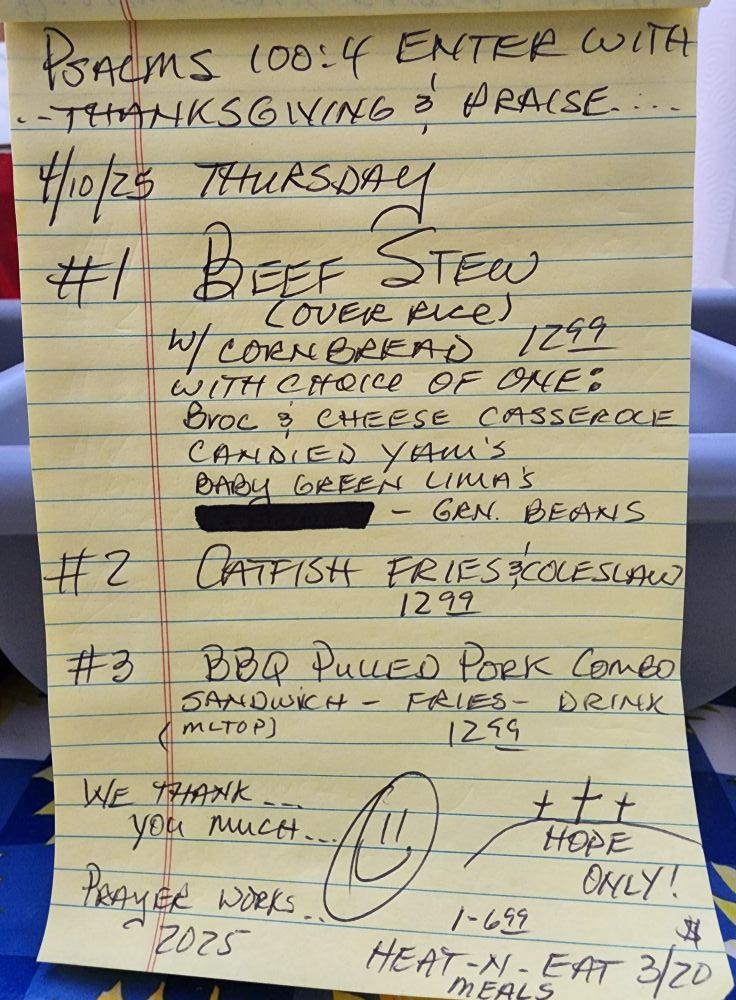 PSALMS 100:4 ENTER WITH
..THANKSGIVING & PRAISE....
4/10/25 THURSDAY
#1 BEEF STEW
(OVER RICE)
W/ CORNBREAD 12 99
WITH CHOICE OF ONE:
BROC & CHEESE CASSEROLE
CANDIED YAM'S
BABY GREEN LIMA'S
- GRN. BEANS
#2 CATFISH FRIES & COLESLAW
12 99
#3 BBQ PULLED PORK COMBO
SANDWICH - FRIES - DRINK
(MLTOP) 12 99
WE THANK...
YOU MUCH...
HOPE
ONLY!
PRAYER WORKS..
2025
1-6 99 $
HEAT-N-EAT 3/20
MEALS